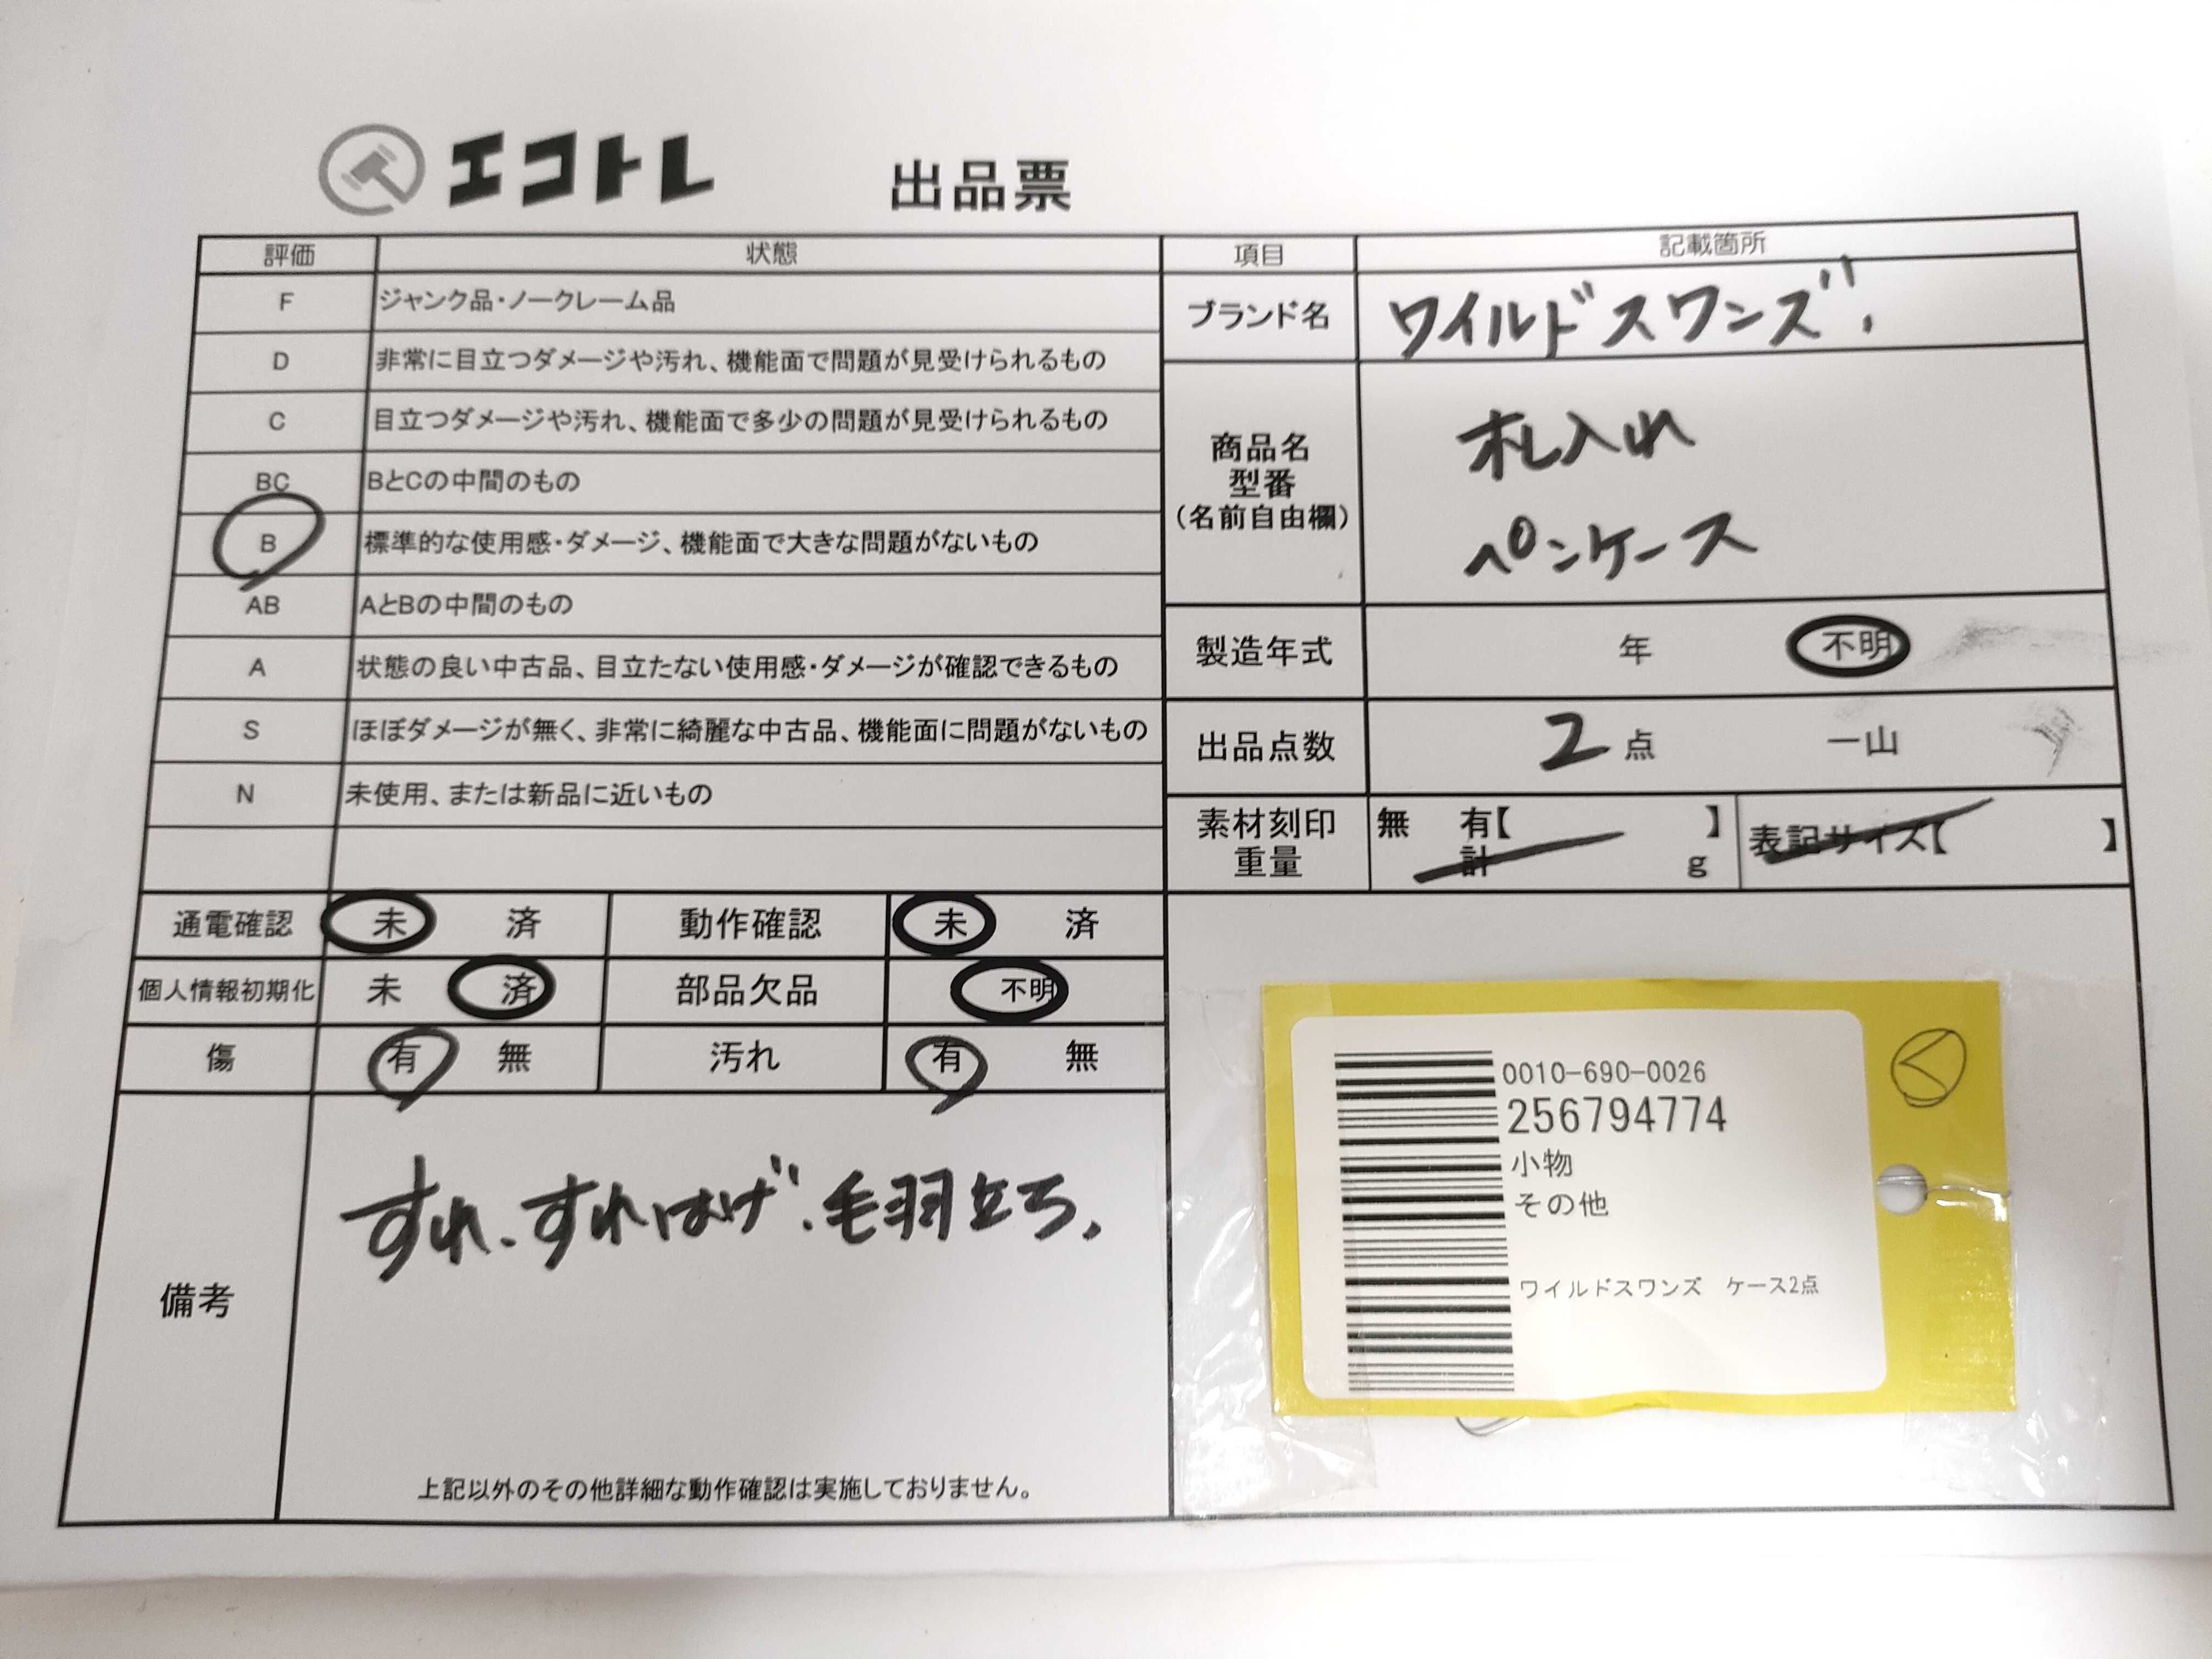 エコトレ 出品票
評価 状態 項目 記載箇所
F ジャンク品・ノークレーム品
D 非常に目立つダメージや汚れ、機能面で問題が見受けられるもの
C 目立つダメージや汚れ、機能面で多少の問題が見受けられるもの
BC BとCの中間のもの
B 標準的な使用感・ダメージ、機能面で大きな問題がないもの
AB AとBの中間のもの
A 状態の良い中古品、目立たない使用感・ダメージが確認できるもの
S ほぼダメージが無く、非常に綺麗な中古品、機能面に問題がないもの
N 未使用、または新品に近いもの
ブランド名 ワイルドスワンズ
商品名
型番
(名前自由欄)
札入れ
ペンケース
製造年式 年 不明
出品点数 2点 一山
素材刻印
重量
無 有【 】
計 g
表記サイズ【 】
通電確認 未 済 動作確認 未 済
個人情報初期化 未 済 部品欠品 不明
傷 有 無 汚れ 有 無
備考
すれ、すれはげ、毛羽立ち、
上記以外のその他詳細な動作確認は実施しておりません。
0010-690-0026
256794774
小物
その他
ワイルドスワンズ ケース2点